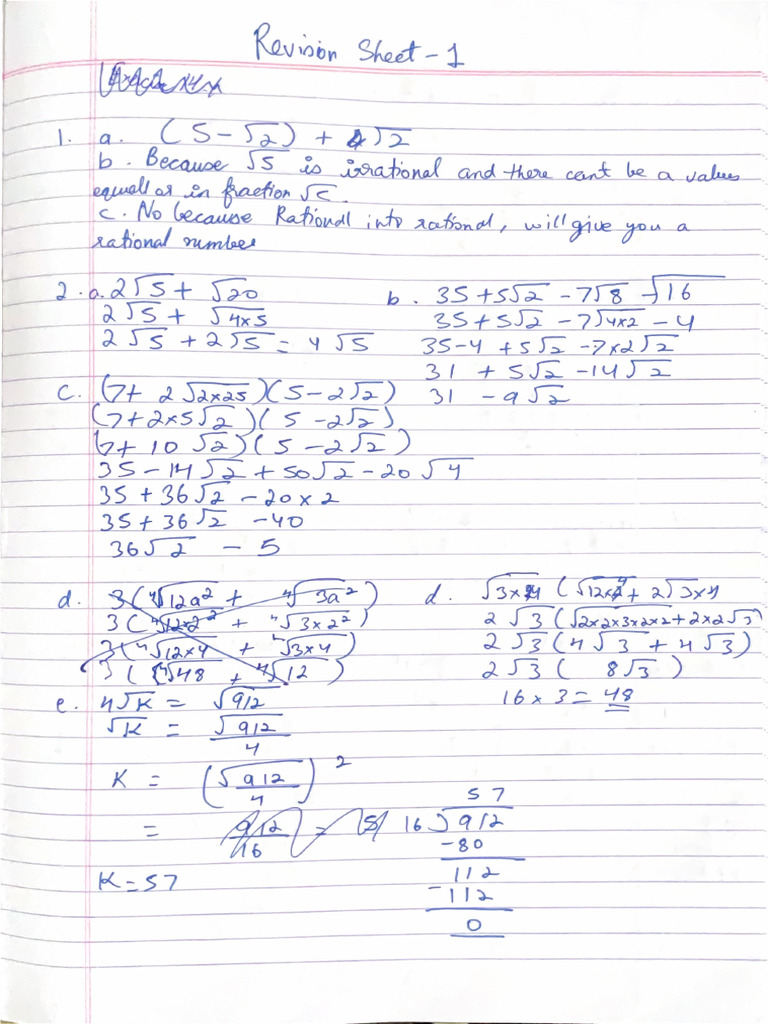 Revision Sheet - 1
1. a. (5-√2) + 4√2
b. Because √5 is irrational and there cant be a values
equall or in fraction √c.
c. No because Rational into rational, will give you a
rational number
2. a. 2√5 + √20
2√5 + √4x5
2√5 + 2√5 = 4√5
b. 35 + 5√2 - 7√8 - √16
35 + 5√2 - 7√4x2 - 4
35-4 + 5√2 - 7x2√2
31 + 5√2 - 14√2
31 - 9√2
c. (7+ 2√2x25)(5-2√2)
(7+2x5√2)(5-2√2)
(7+ 10√2)(5-2√2)
35 - 14√2 + 50√2 - 20√4
35 + 36√2 - 20x2
35 + 36√2 - 40
36√2 - 5
d. 3(∜12a² + ∜3a²)
3(∜12x2² + ∜3x2²)
3(∜12x4 + ∜3x4)
3(∜48 + ∜12)
d. √3x4 (√12x4 + 2√3x4
2√3(√2x2x3x2x2 + 2x2√3)
2√3(4√3 + 4√3)
2√3( 8√3)
16 x 3 = 48
e. 4√K = √912
√K = √912/4
K = (√912/4)²
= 912/16 =
K = 57
57
16)912
-80
112
-112
0